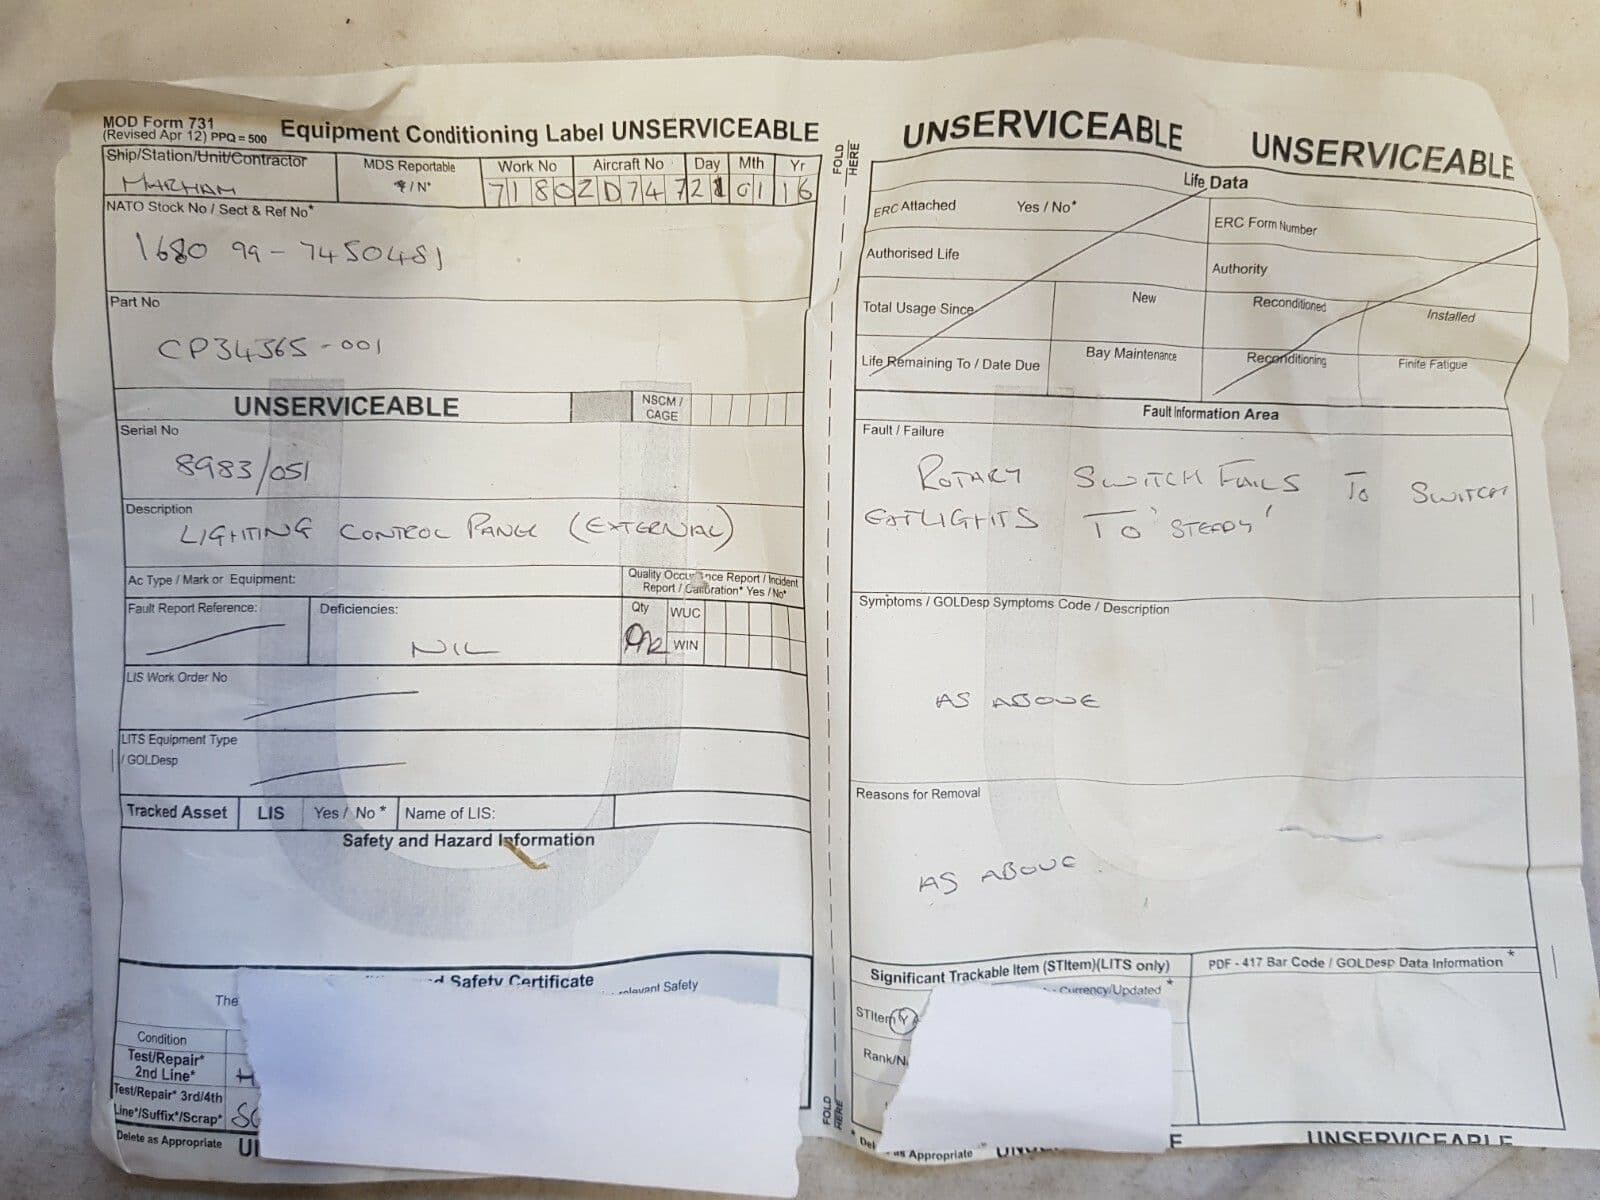 MOD Form 731
(Revised Apr 12) PPQ = 500
Equipment Conditioning Label UNSERVICEABLE
Ship/Station/Unit/Contractor
MARHAM
MDS Reportable
Y/N*
Work No
7180
Aircraft No
ZD747
Day Mth Yr
21 01 16
NATO Stock No / Sect & Ref No*
1680 99-7450481
Part No
CP34365-001
UNSERVICEABLE
NSCM / CAGE
Serial No
8983/051
Description
LIGHTING CONTROL PANEL (EXTERNAL)
Ac Type / Mark or Equipment:
Quality Occurrence Report / Incident
Report / Calibration* Yes / No*
Fault Report Reference:
Deficiencies:
NIL
Qty
WUC
WIN
LIS Work Order No
LITS Equipment Type
/ GOLDesp
Tracked Asset LIS Yes / No * Name of LIS:
Safety and Hazard Information
Safety Certificate
Safety
The
Condition
Test/Repair*
2nd Line*
Test/Repair* 3rd/4th
Line*/Suffix*/Scrap*
Delete as Appropriate
FOLD HERE
FOLD HERE
UNSERVICEABLE UNSERVICEABLE
Life Data
ERC Attached Yes / No*
ERC Form Number
Authorised Life
Authority
Total Usage Since
New
Reconditioned
Installed
Life Remaining To / Date Due
Bay Maintenance
Reconditioning
Finite Fatigue
Fault Information Area
Fault / Failure
ROTARY SWITCH FAILS TO SWITCH
TO 'STEADY'
Symptoms / GOLDesp Symptoms Code / Description
AS ABOVE
Reasons for Removal
AS ABOVE
Significant Trackable Item (STItem)(LITS only)
Currency/Updated *
PDF - 417 Bar Code / GOLDesp Data Information *
STItem Y
as Appropriate
UNSERVICEABLE